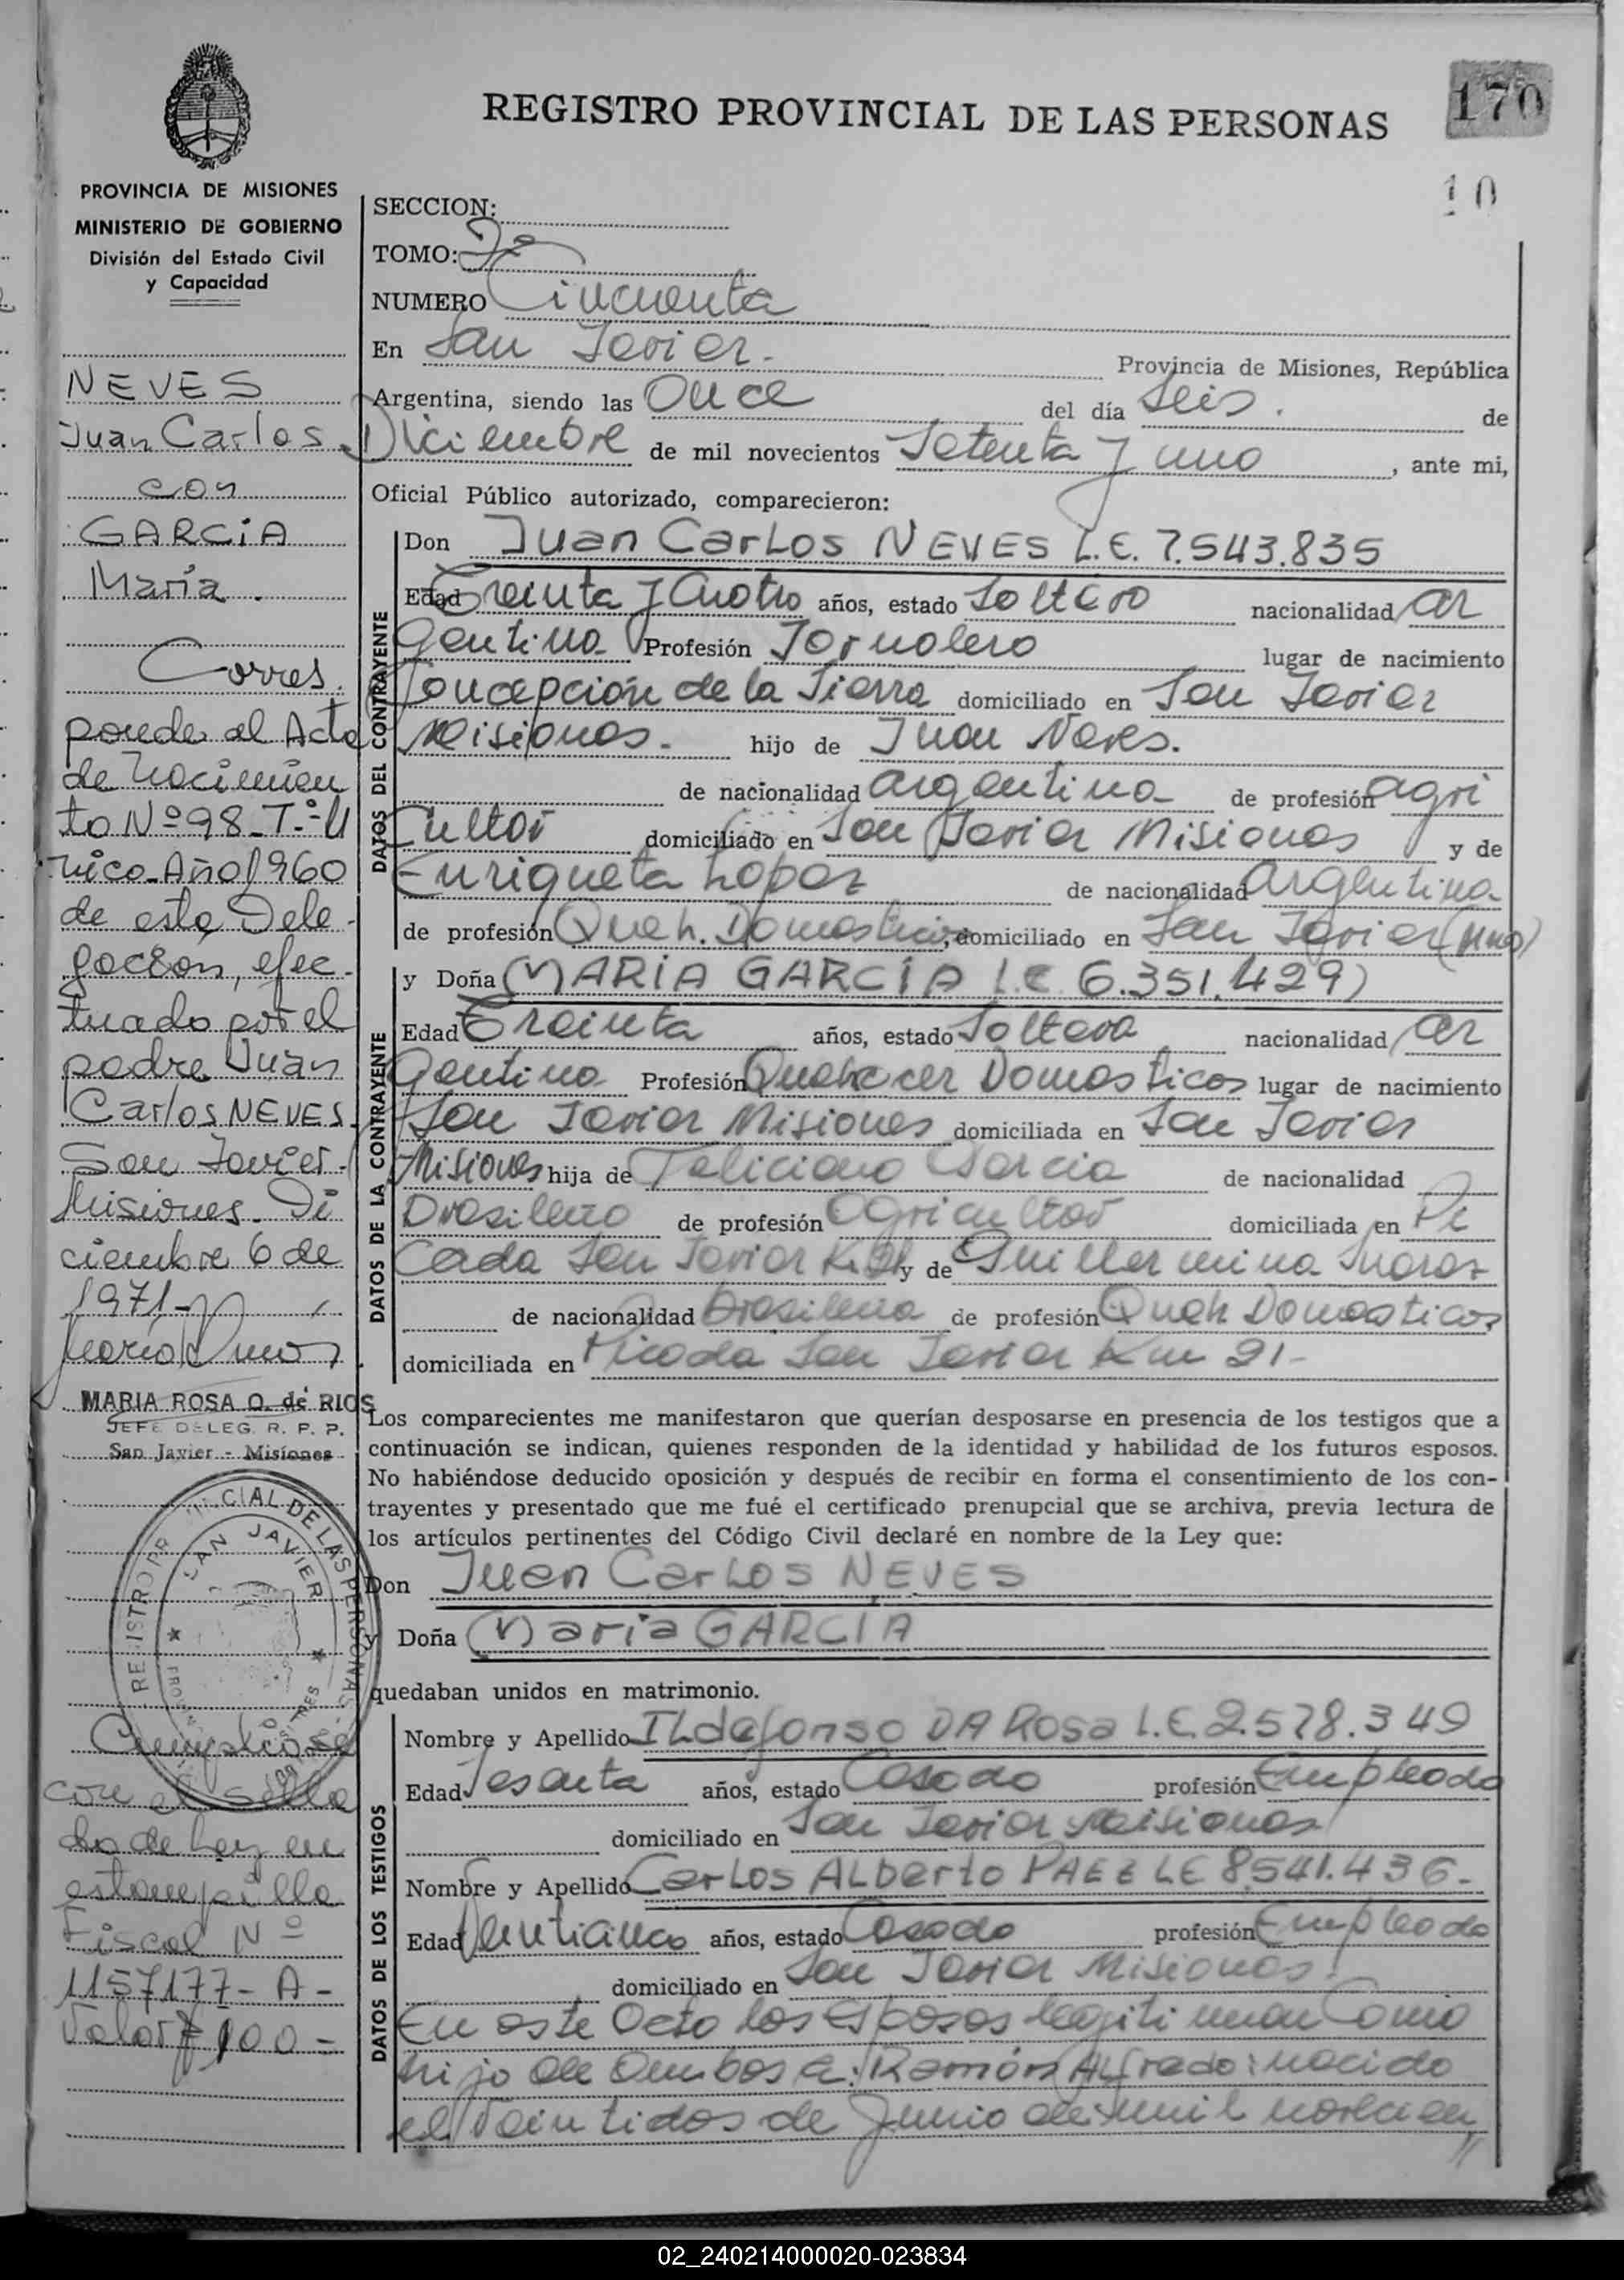 170
REGISTRO PROVINCIAL DE LAS PERSONAS
10
PROVINCIA DE MISIONES
MINISTERIO DE GOBIERNO
División del Estado Civil
y Capacidad
NEVES
Juan Carlos
con
GARCíA
María.
Corres
ponde al Acta
de Nacimien
to Nº 98-T.-U
nico-Año 1960
de esta Dele-
gación, efec-
tuado por el
padre Juan
Carlos NEVES.
San Javier-
Misiones. Di
ciembre 6 de
1971-
MARIA ROSA O. de RIOS
JEFE DELEG. R. P. P.
San Javier - Misiones
REGISTRO PROVINCIAL DE LAS PERSONAS
SAN JAVIER
Cumplióse
con el sella
do de Ley en
estampilla
Fiscal Nº
1157177-A-
Valor $ 100=
SECCION:
TOMO:
NUMERO Cincuenta
En San Javier. Provincia de Misiones, República
Argentina, siendo las Once del día Seis. de
Diciembre de mil novecientos Setenta y uno, ante mi,
Oficial Público autorizado, comparecieron:
DATOS DEL CONTRAYENTE
Don Juan Carlos NEVES L.E. 7.543.835
Edad Treinta y Cuatro años, estado Soltero nacionalidad Ar
gentina Profesión Jornalero lugar de nacimiento
Concepción de la Sierra domiciliado en San Javier
Misiones. hijo de Juan Neves.
de nacionalidad argentina de profesión agri
cultor domiciliado en San Javier Misiones y de
Enriqueta Lopez de nacionalidad Argentina
de profesión Queh. Domesticos, domiciliado en San Javier (Mnes)
DATOS DE LA CONTRAYENTE
y Doña MARíA GARCÍA L.C 6.351.429)
Edad Treinta años, estado Soltera nacionalidad Ar
gentina Profesión Quehacer Domesticos lugar de nacimiento
San Javier Misiones domiciliada en San Javier
Misiones hija de Feliciano Garcia de nacionalidad
Brasilero de profesión Agricultor domiciliada en Pi
cada San Javier K. 21 y de Guillermina Suarez
de nacionalidad Brasilera de profesión Queh Domesticos
domiciliada en Picada San Javier Km 21-
Los comparecientes me manifestaron que querían desposarse en presencia de los testigos que a
continuación se indican, quienes responden de la identidad y habilidad de los futuros esposos.
No habiéndose deducido oposición y después de recibir en forma el consentimiento de los con-
trayentes y presentado que me fué el certificado prenupcial que se archiva, previa lectura de
los artículos pertinentes del Código Civil declaré en nombre de la Ley que:
Don Juan Carlos NEVES
y Doña María GARCIA
quedaban unidos en matrimonio.
DATOS DE LOS TESTIGOS
Nombre y Apellido ILdefonso DA Rosa L.E. 2.578.349
Edad Sesenta años, estado Casado profesión Empleado
domiciliado en San Javier Misiones
Nombre y Apellido Carlos ALberto PAEZ LE 8.541.436-
Edad Venticinco años, estado Casado profesión Empleado
domiciliado en San Javier Misiones.
En este Acto los Esposos legitiman Como
hijo de Ambos a: Ramón Alfredo: nacido
el Veintidos de Junio de mil novecien
02_240214000020-023834